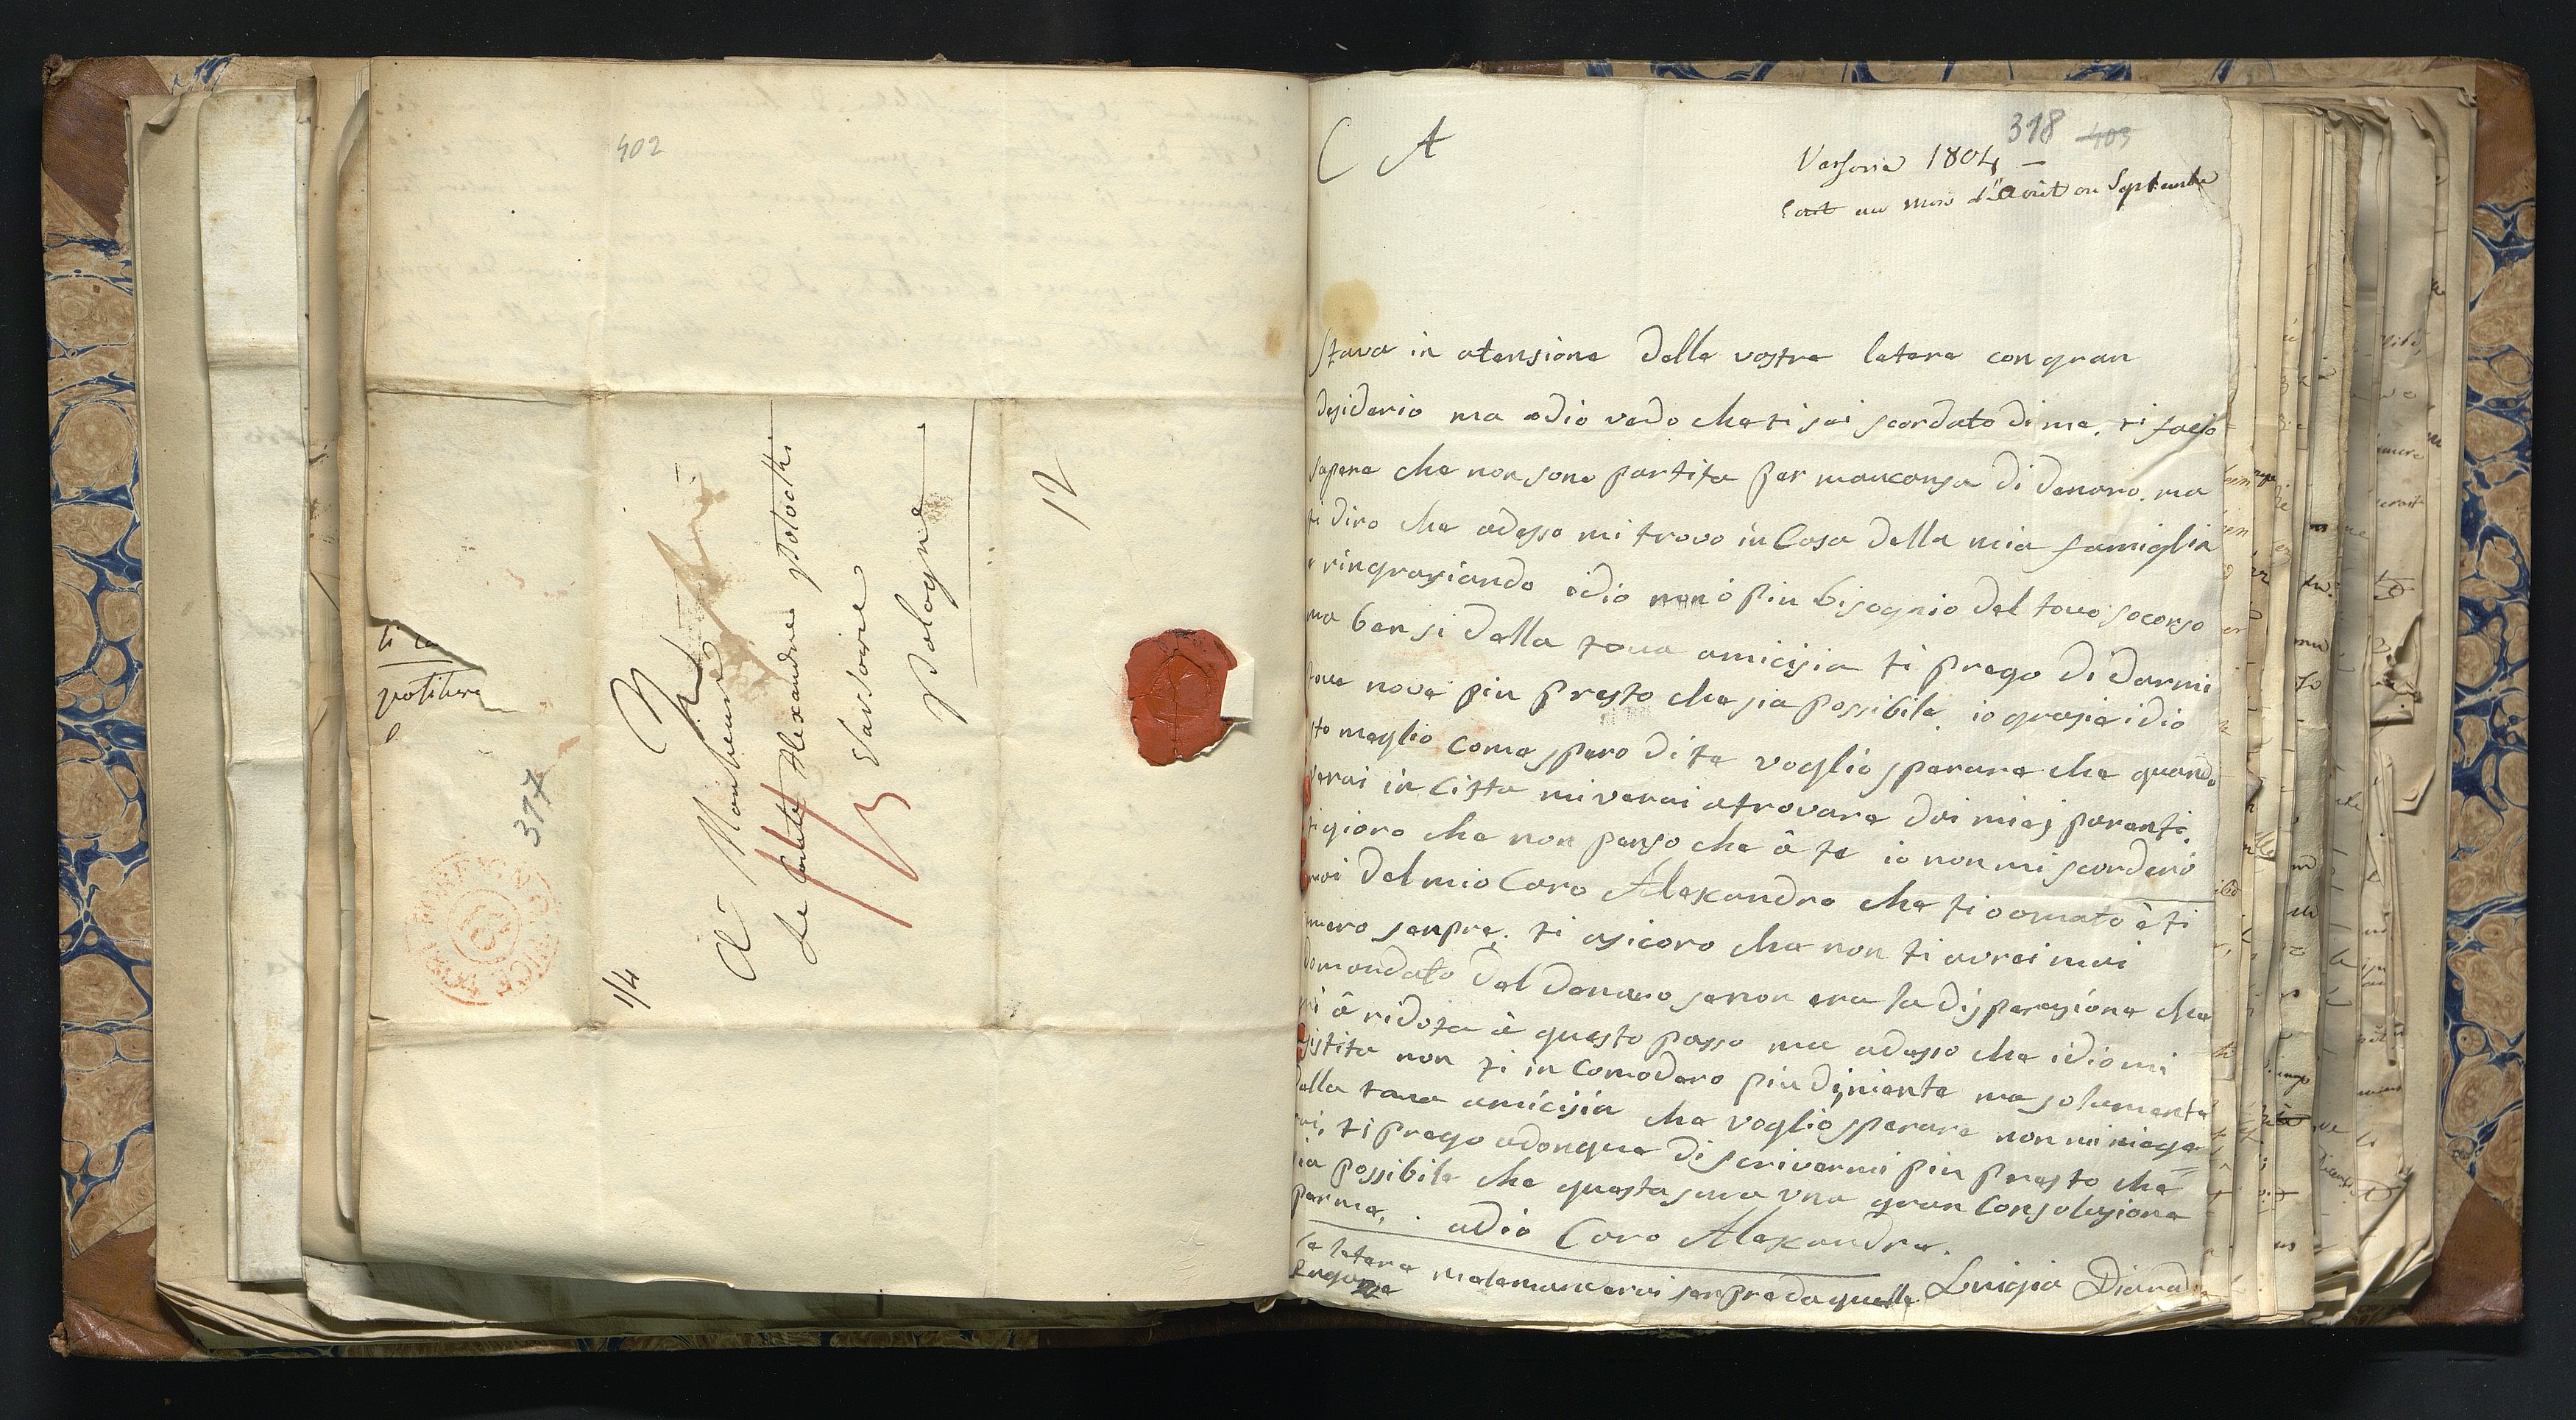 402
ti la
potiture
317
1/4
A Monsieur
Le Comte Alexandre Potocki
Varsovie
Pologne
12
318 403
C A
Varsovie 1804 —
Ecrit au mois d'Août ou Septembre
stava in atensione delle vostre letere con gran
desiderio ma adio vedo che ti sei scordato di me. ti facio
sapere che non sono partita per mancansa di denaro. ma
ti diro che adesso mi trovo in Casa della mia famiglia
e ringrasiando idio non ó piu bisognio del touo socorso
ma ben si della toua amicisia ti prego di darmi
toue nove piu presto che sia possibile. io grasie idio
sto meglio come spero di te voglio sperare che quando
verai in Citta mi verai atrovare dai miei parenti.
ti gioro che non penso che â te io non mi scorderò
mai del mio Caro Alexandro che ti o amato è ti
amero senpre. ti asicoro che non ti avrei mai
domandato del denaro se non era la disperasione che
mi â ridota à questo passo ma adesso che idio mi
asistito non ti in Comodero piu di niente ma solamente
della toua amicisia che voglio sperare non mi niege
rai. ti prego adonque di scrivermi piu presto che
sia possibile che questa sara una gran Consolasione
per me. . adio Caro Alexandro.
Luigia
la letera me la manderai senpre da quelle